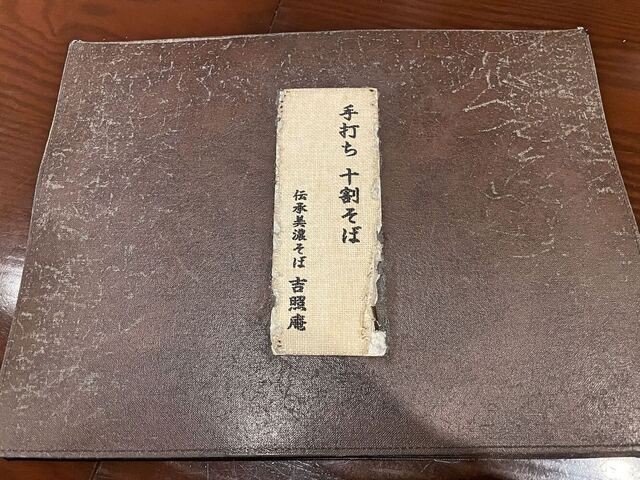 手打ち 十割そば
伝承美濃そば 吉照庵